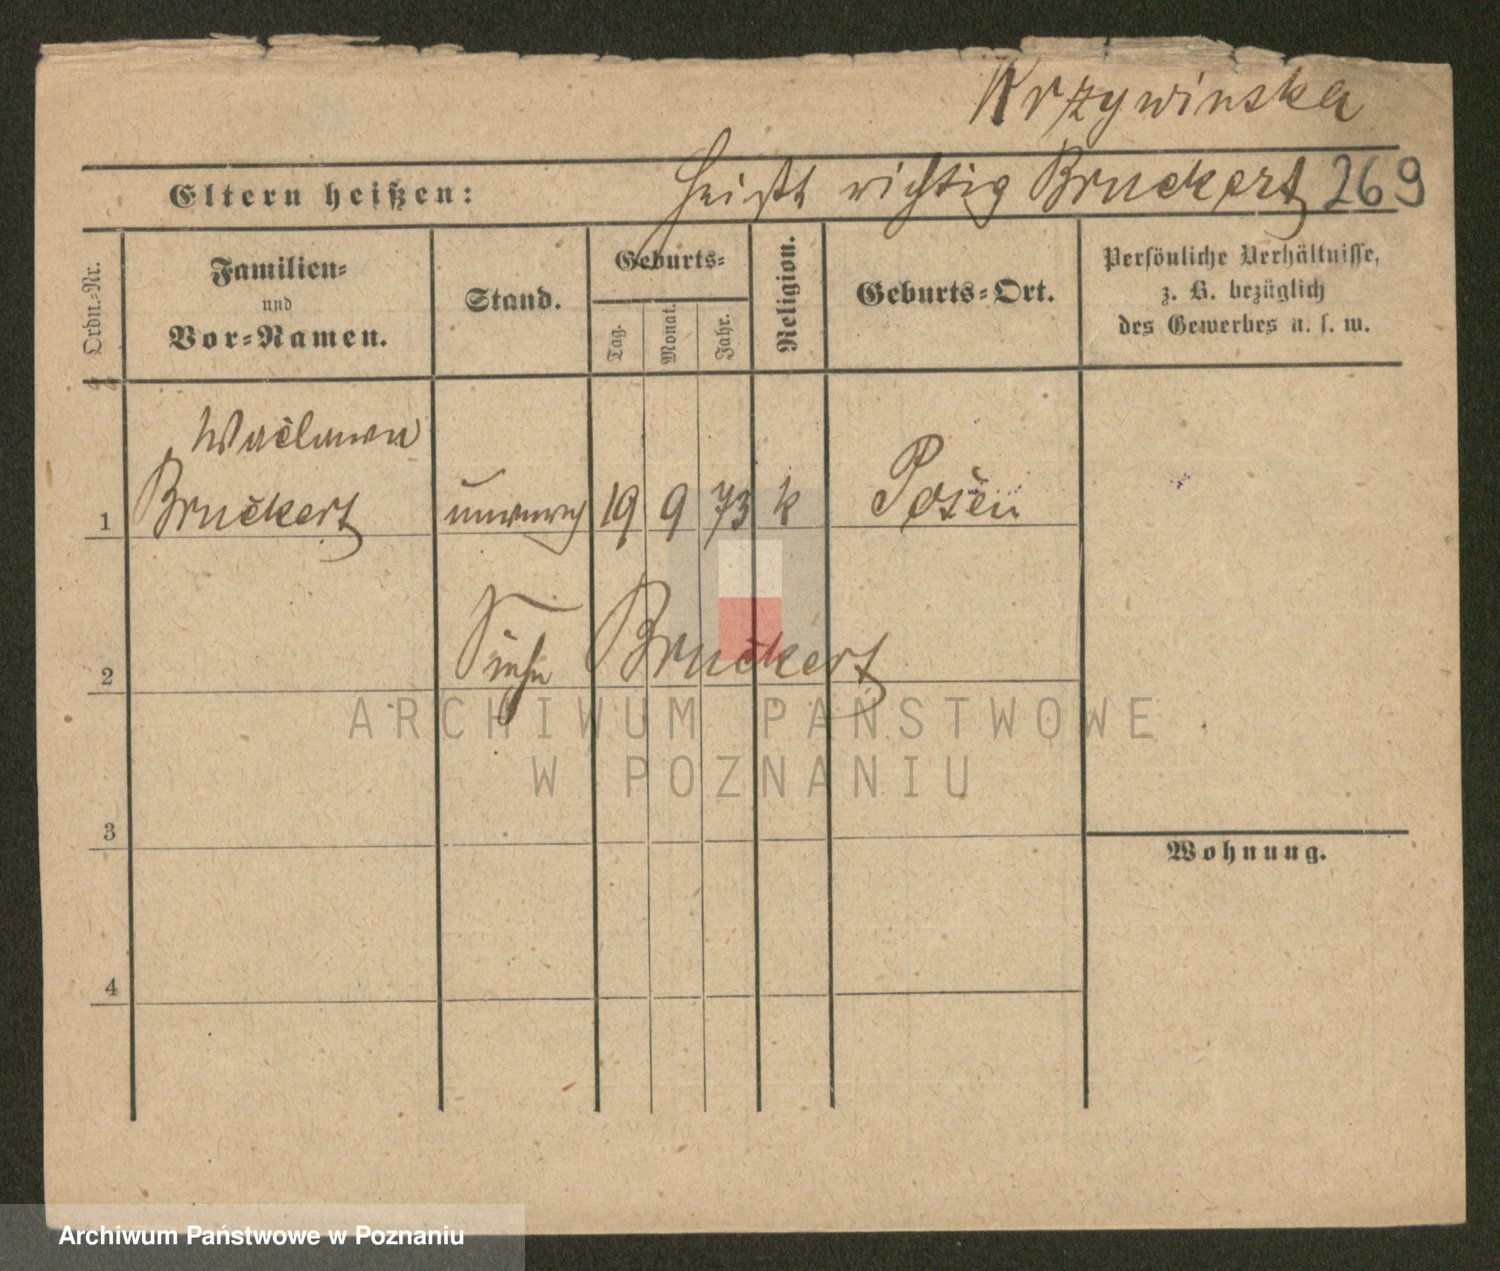 Krzywinska
Eltern heißen: heißt richtig Bruckert 269
Ordn.-Nr.
Familien-
und
Vor-Namen.
Stand.
Geburts-
Tag.
Monat.
Jahr.
Religion.
Geburts-Ort.
Persönliche Verhältnisse,
z. B. bezüglich
des Gewerbes u. s. w.
Waclawa
1 Bruckert 19 9 73 k Posen
2 Siehe Bruckert
3
Wohnung.
4
ARCHIWUM PAŃSTWOWE
W POZNANIU
Archiwum Państwowe w Poznaniu